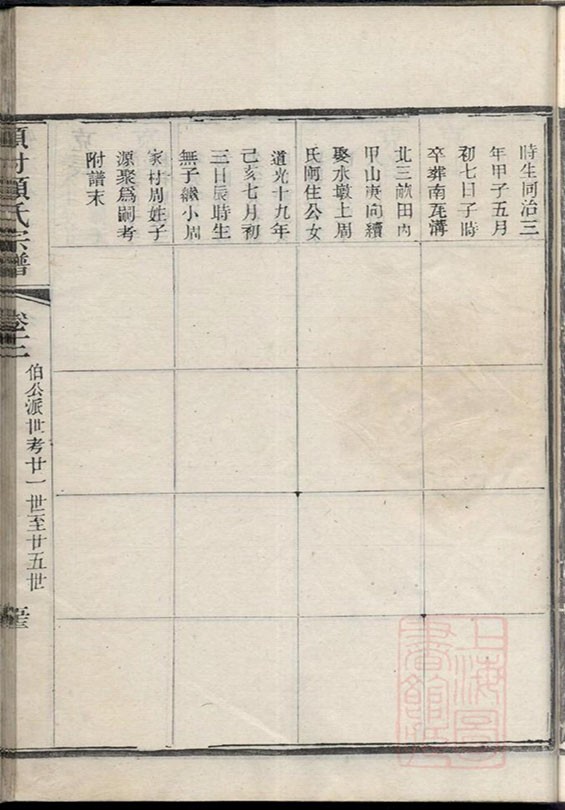 時生同治三
年甲子五月
初七日子時
卒葬南瓦溝
北三畝田內
甲山庚向續
娶水墩上周
氏阿住公女
道光十九年
己亥七月初
三日辰時生
無子繼小周
家村周姓子
源聚爲嗣考
附譜末
村顧氏宗譜
卷十二
伯公派世考廿一世至廿五世
上海圖書館藏